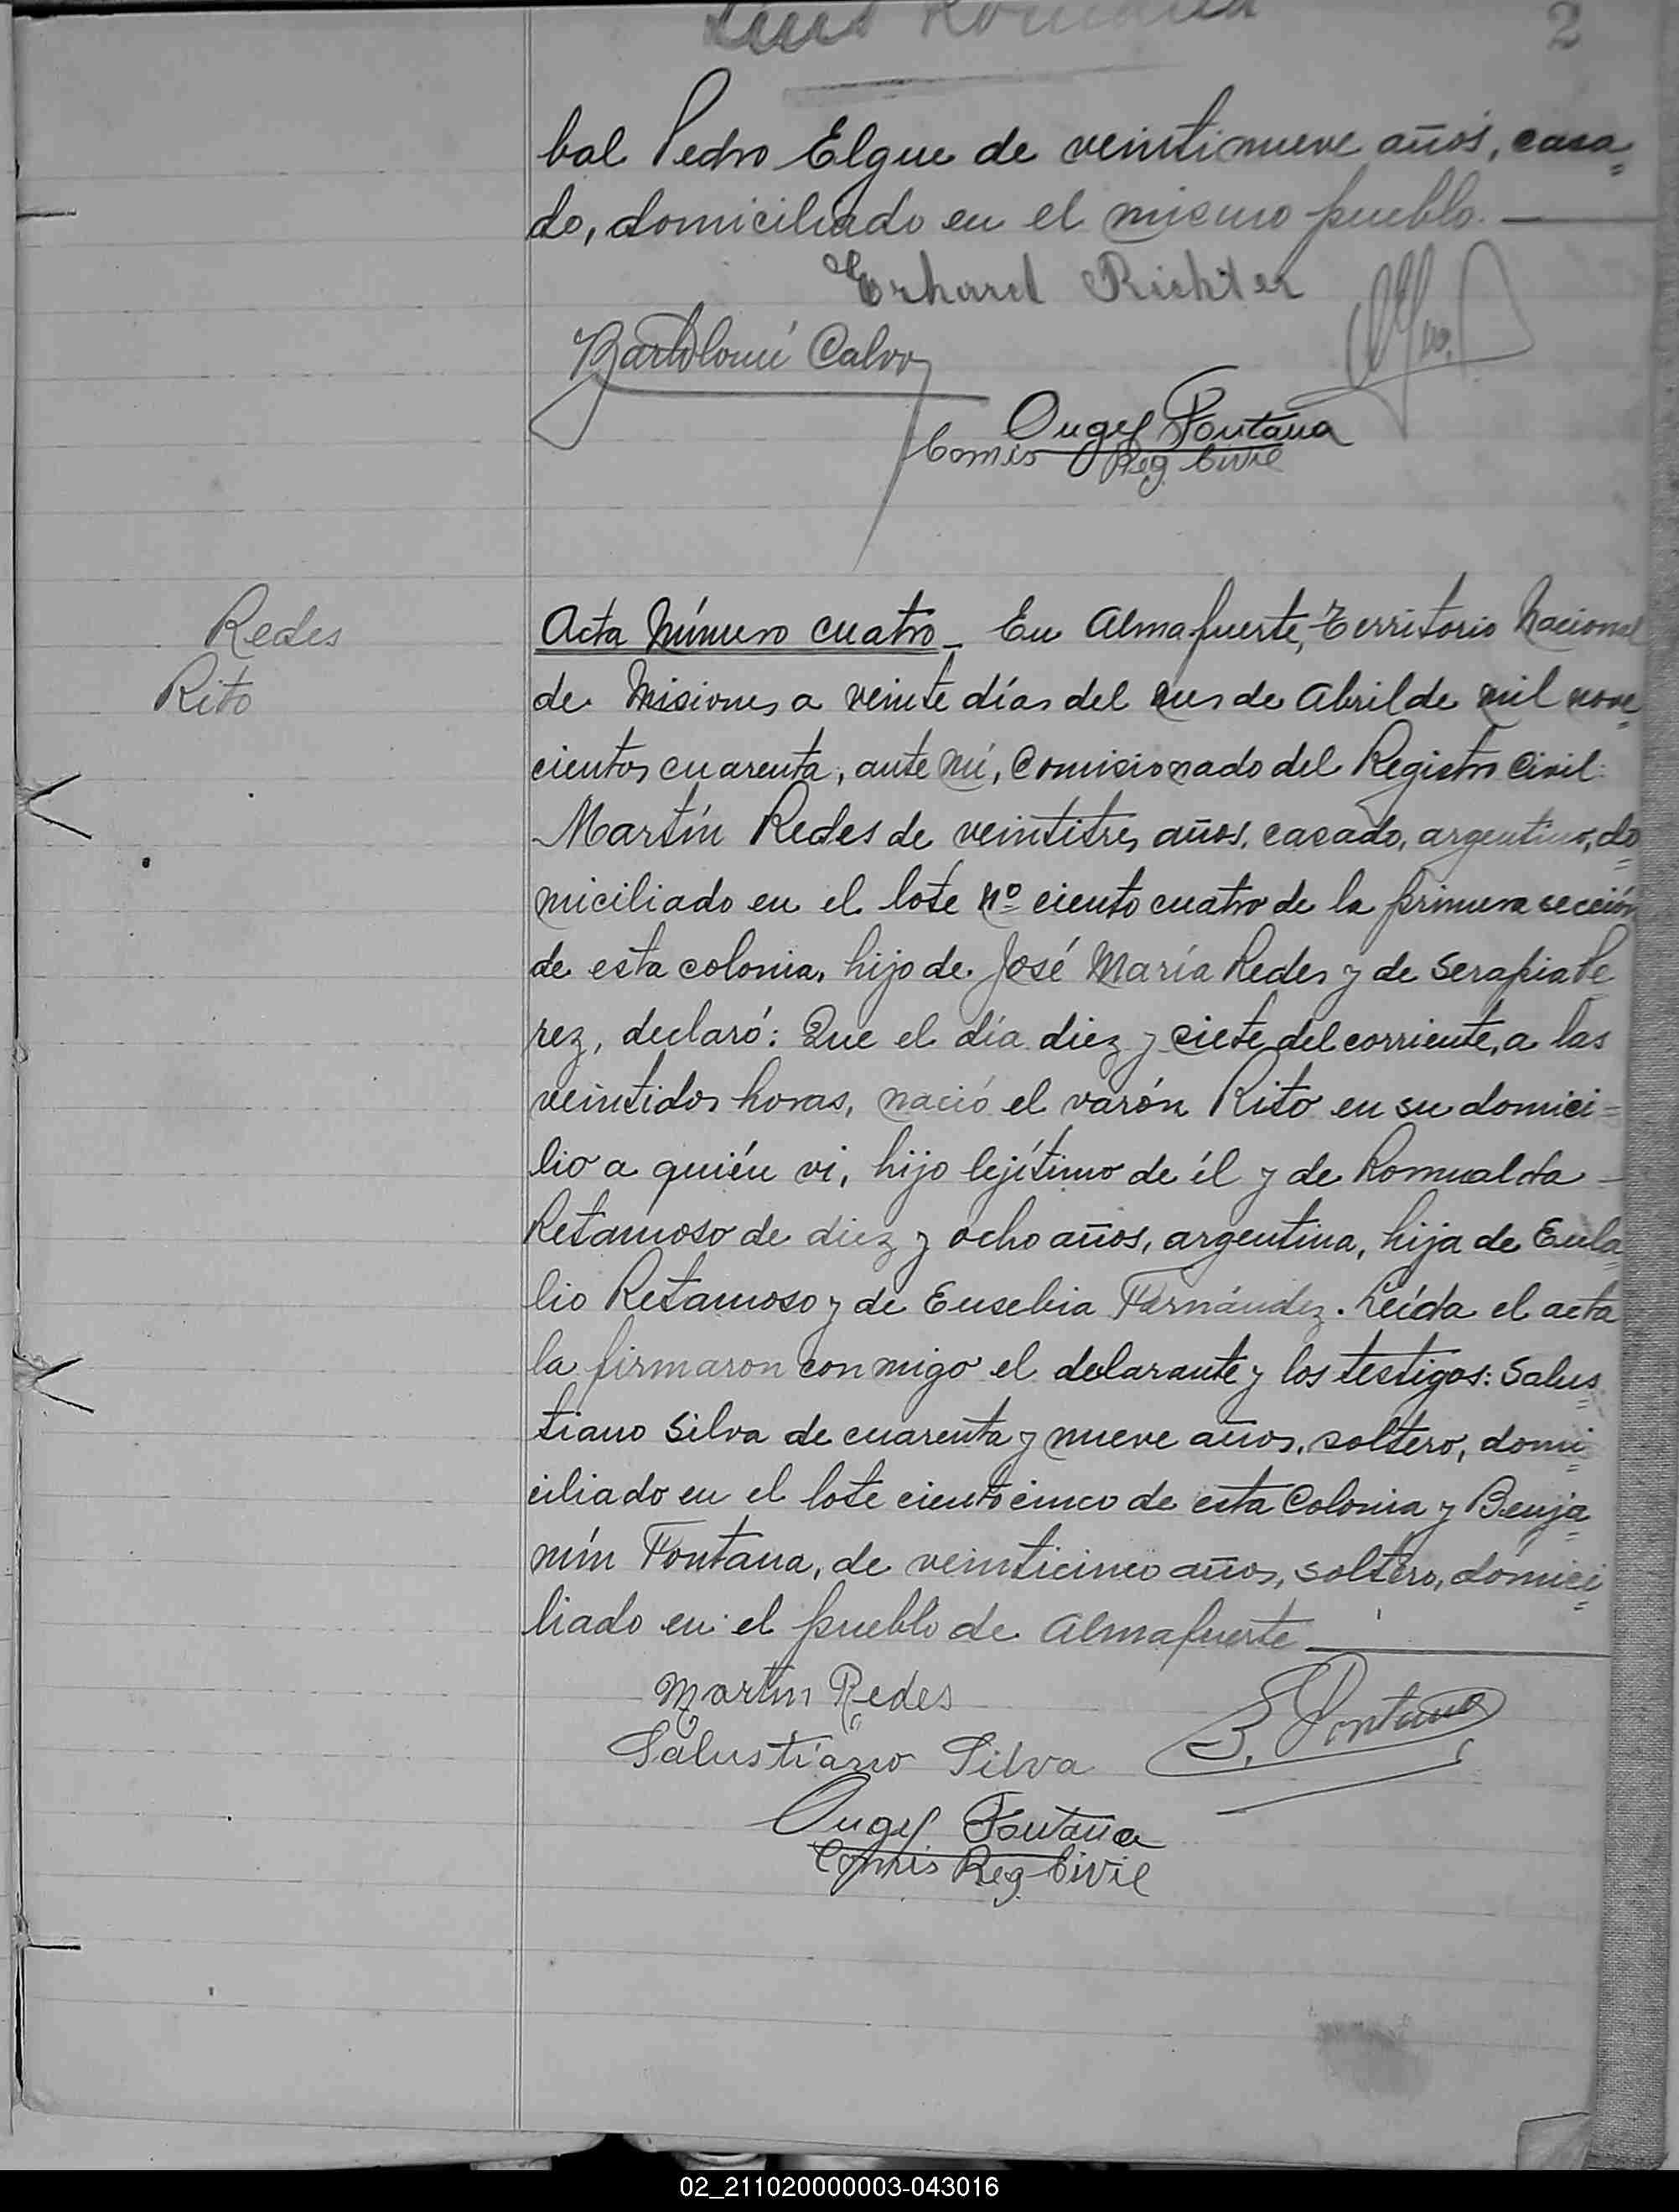 2
bal Pedro Elgue de veintinueve años, casa=
do, domiciliado en el mismo pueblo.
Erhard Richter
Bartolomé Calvo
Angel Fontana
Comis Reg. Civil
Redes
Rito
Acta Número cuatro _ En Almafuerte, Territorio Nacional
de Misiones a veinte días del mes de Abril de mil nove=
cientos cuarenta, ante mí, Comisionado del Registro Civil:
Martín Redes de veintitres años, casado, argentino, do=
miciliado en el lote Nº ciento cuatro de la primera sección
de esta colonia, hijo de José María Redes y de Serapia Pe
rez, declaró: Que el día diez y siete del corriente, a las
veintidos horas, nació el varón Rito en su domici=
lio a quién vi, hijo lejítimo de él y de Romualda
Retamoso de diez y ocho años, argentina, hija de Eula=
lio Retamoso y de Eusebia Fernández. Leída el acta
la firmaron conmigo el delarante y los testigos: Salus=
tiano Silva de cuarenta y nueve años, soltero, domi=
ciliado en el lote ciento cinco de esta Colonia y Benja=
mín Fontana, de veinticinco años, soltero, domici=
liado en el pueblo de Almafuerte
Martin Redes
B. Fontana
Salustiano Silva
Angel Fontana
Comis Reg. Civil
02_211020000003-043016